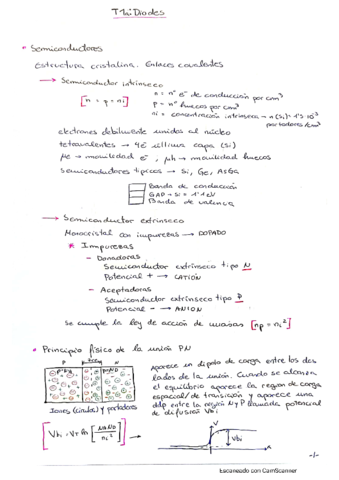 T1: Diodos
* Semiconductores
estructura cristalina. Enlaces covalentes
→ Semiconductor intrínseco
n = nº e⁻ de conducción por cm³
[n = p = ni]
p = nº huecos por cm³
ni = concentración intrínseca → n(Si)=
portadores/cm³
electrones debilmente unidos al núcleo
tetravalentes → 4e⁻ última capa (Si)
μe → movilidad e⁻, μh → movilidad huecos
Semiconductores típicos → Si, Ge, AsGa
Banda de conducción
GAP → Si = 1'1 eV
Banda de valencia
→ Semiconductor extrínseco
Monocristal con impurezas → DOPADO
* Impurezas
- Donadoras
Semiconductor extrínseco tipo N
Potencial + → CATIÓN
- Aceptadoras
Semiconductor extrínseco tipo P
Potencial - → ANIÓN
Se cumple la ley de acción de masas [np = ni²]
* Principio físico de la unión PN
P N
Aparece un dipolo de carga entre los dos
lados de la unión. Cuando se alcanza
el equilibrio aparece la región de carga
espacial/de transición y aparece una
ddp entre la región N y P llamada potencial
de difusión Vbi
Iones (círculos) y portadores
[Vbi = VT ln [NA ND / ni²]]
V
Vbi
-1-
Escaneado con CamScanner